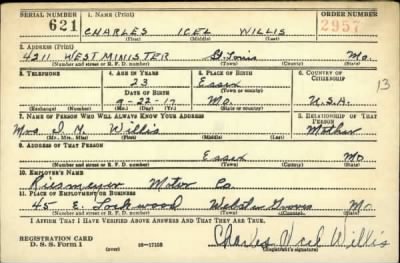 SERIAL NUMBER 1. NAME (Print) ORDER NUMBER
621 CHARLES ICEL WILLIS 2957
(First) (Middle) (Last)
2. ADDRESS (Print)
4211 WESTMINISTER St. Louis Mo.
(Number and street or R. F. D. number) (Town) (County) (State)
3. TELEPHONE 4. AGE IN YEARS 5. PLACE OF BIRTH 6. COUNTRY OF CITIZENSHIP
23 Essex 13
DATE OF BIRTH (Town or county)
9-22-17 Mo. U.S.A.
(Exchange) (Number) (Mo.) (Day) (Yr.) (State or country)
7. NAME OF PERSON WHO WILL ALWAYS KNOW YOUR ADDRESS 8. RELATIONSHIP OF THAT PERSON
Mrs. Willis Mother
(Mr., Mrs., Miss) (First) (Middle) (Last)
9. ADDRESS OF THAT PERSON
Essex Mo
(Number and street or R. F. D. number) (Town) (County) (State)
10. EMPLOYER'S NAME
Riesmeyer Motor Co
11. PLACE OF EMPLOYMENT OR BUSINESS
45 E. Lockwood Webster Groves Mo
(Number and street or R. F. D. number) (Town) (County) (State)
I AFFIRM THAT I HAVE VERIFIED ABOVE ANSWERS AND THAT THEY ARE TRUE.
REGISTRATION CARD
D. S. S. Form 1 (over) 16-17105 Charles Icel Willis
(Registrant's signature)